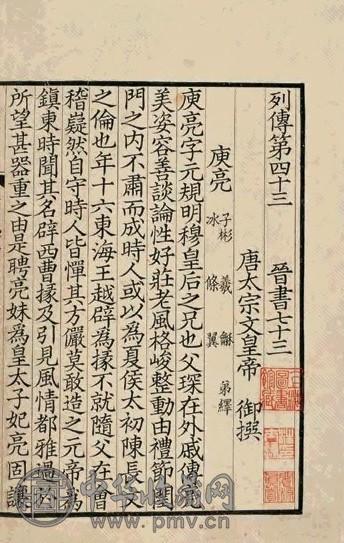 列傳第四十三 晉書七十三
唐太宗文皇帝 御撰
庾亮 子彬 羲 龢 弟懌
冰 條 翼
庾亮字元規明穆皇后之兄也父琛在外戚傳亮
美姿容善談論性好莊老風格峻整動由禮節閨
門之内不肅而成時人或以為夏侯太初陳長文
之倫也年十六東海王越辟為掾不就隨父在會
稽嶷然自守時人皆憚其方儼莫敢造之元帝為
鎮東時聞其名辟西曹掾及引見風情都雅過於
所望甚器重之由是聘亮妹為皇太子妃亮固讓
中华收藏网
www.pmv.cn